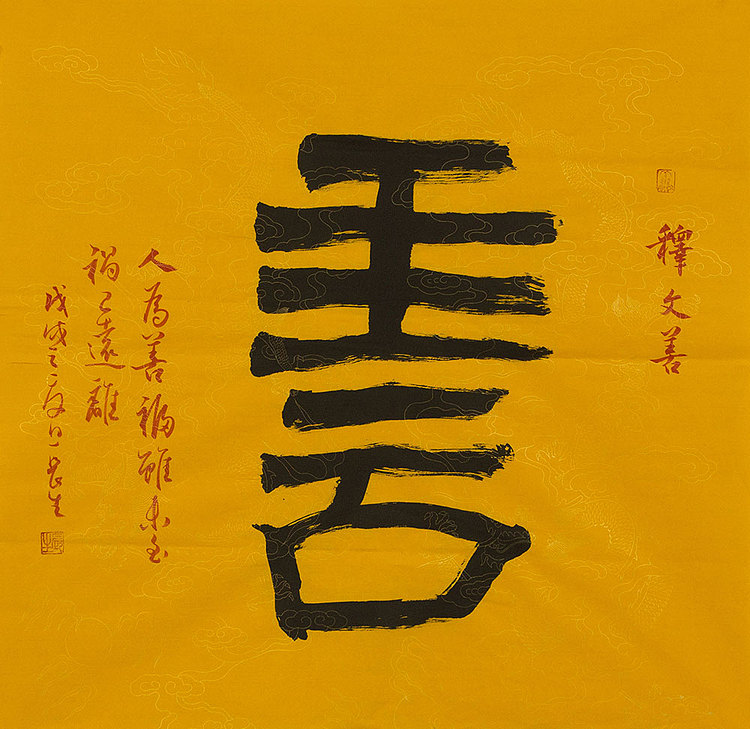 釋文善
善
人為善福雖未至
禍已遠離
戊戌之夏長生